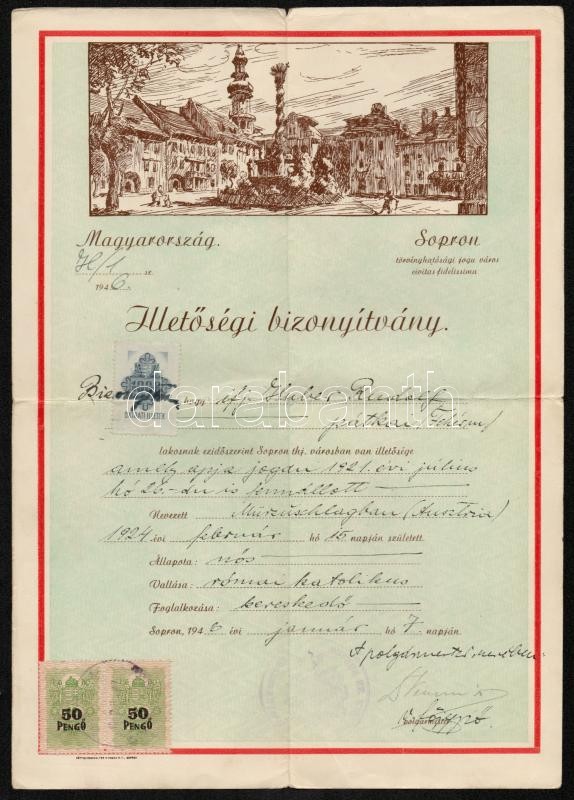 Magyarország.
Sopron
törvényhatósági jogu város
civitas fidelissima
H/1 sz.
1946.
Illetőségi bizonyítvány.
100
hogy ifj. Huber Rudolf
pátkai (Fehérm)
lakosnak ezidőszerint Sopron thj. városban van illetősége
amely apja jogán 1921. évi július
hó 26.-án is fennállott
Nevezett Mürzuschlagban (Ausztria)
1924 évi február hó 15 napján született.
Állapota: nős
Vallása: római katolikus
Foglalkozása: kereskedő
Sopron, 1946 évi január hó 7. napján.
A polgármester
polgármester
50
PENGŐ
50
PENGŐ
darabanth